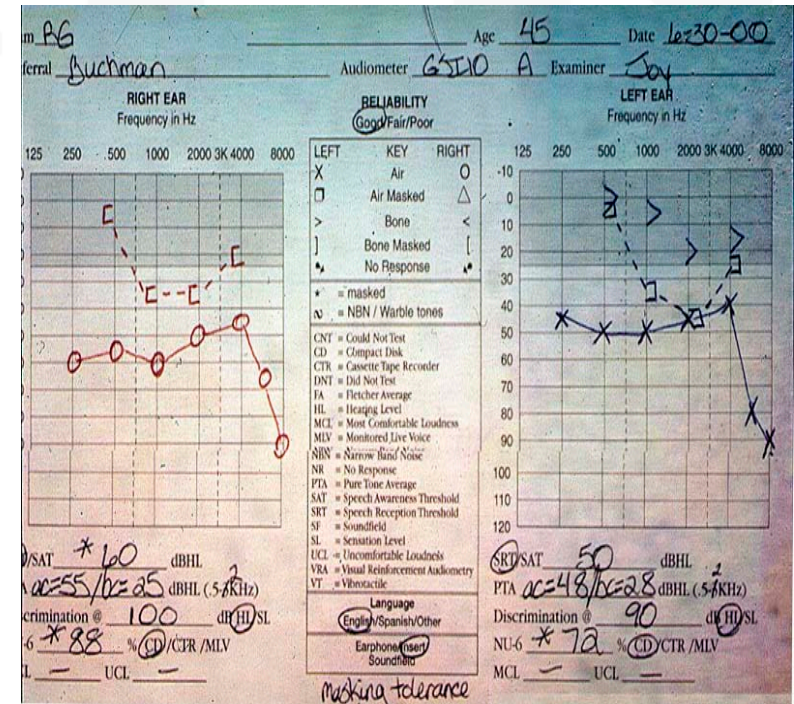 m RG Age 45 Date 6-30-00
ferral Buchman Audiometer GSI10 A Examiner Joy
RIGHT EAR
Frequency in Hz
125 250 500 1000 2000 3K 4000 8000
RELIABILITY
Good/Fair/Poor
LEFT KEY RIGHT
X Air O
Air Masked △
> Bone <
] Bone Masked [
No Response
* = masked
= NBN / Warble tones
CNT = Could Not Test
CD = Compact Disk
CTR = Cassette Tape Recorder
DNT = Did Not Test
FA = Fletcher Average
HL = Hearing Level
MCL = Most Comfortable Loudness
MLV = Monitored Live Voice
NBN = Narrow Band Noise
NR = No Response
PTA = Pure Tone Average
SAT = Speech Awareness Threshold
SRT = Speech Reception Threshold
SF = Soundfield
SL = Sensation Level
UCL = Uncomfortable Loudness
VRA = Visual Reinforcement Audiometry
VT = Vibrotactile
Language
English/Spanish/Other
Earphone/Insert/
Soundfield
Masking tolerance
LEFT EAR
Frequency in Hz
125 250 500 1000 2000 3K 4000 8000
-10
0
10
20
30
40
50
60
70
80
90
100
110
120
/SAT * 60 dBHL
ac=55/bc=25 dBHL (.5-2KHz)
crimination @ 100 dB HL/SL
-6 * 88 % CD/CTR /MLV
L — UCL —
SRT/SAT 50 dBHL
PTA ac=48/bc=28 dBHL (.5-2KHz)
Discrimination @ 90 dB HL/SL
NU-6 * 72 % CD/CTR /MLV
MCL — UCL —